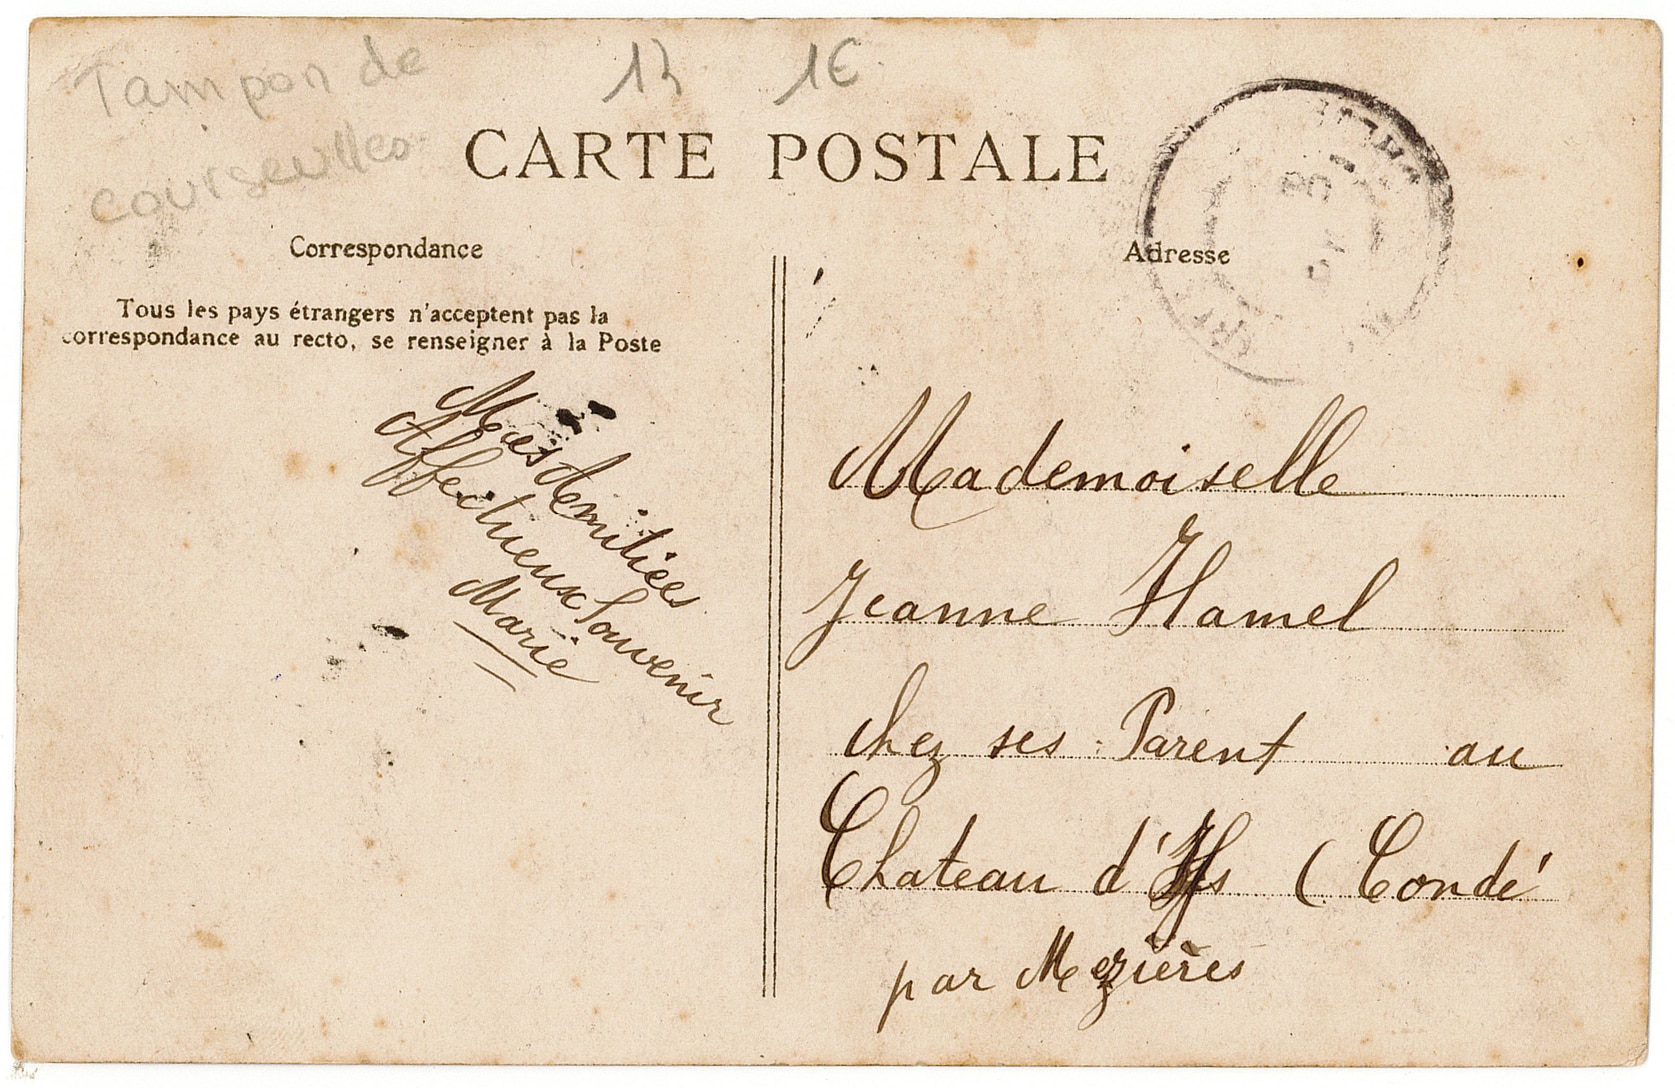 Tampon de
courseulles
13 1€
CARTE POSTALE
Correspondance
Adresse
Tous les pays étrangers n'acceptent pas la
correspondance au recto, se renseigner à la Poste
Mes Amitiées
Affectueux Souvenir
Marie
Mademoiselle
Jeanne Hamel
chez ses Parent au
Chateau d'Ifs (Condé
par Mezières